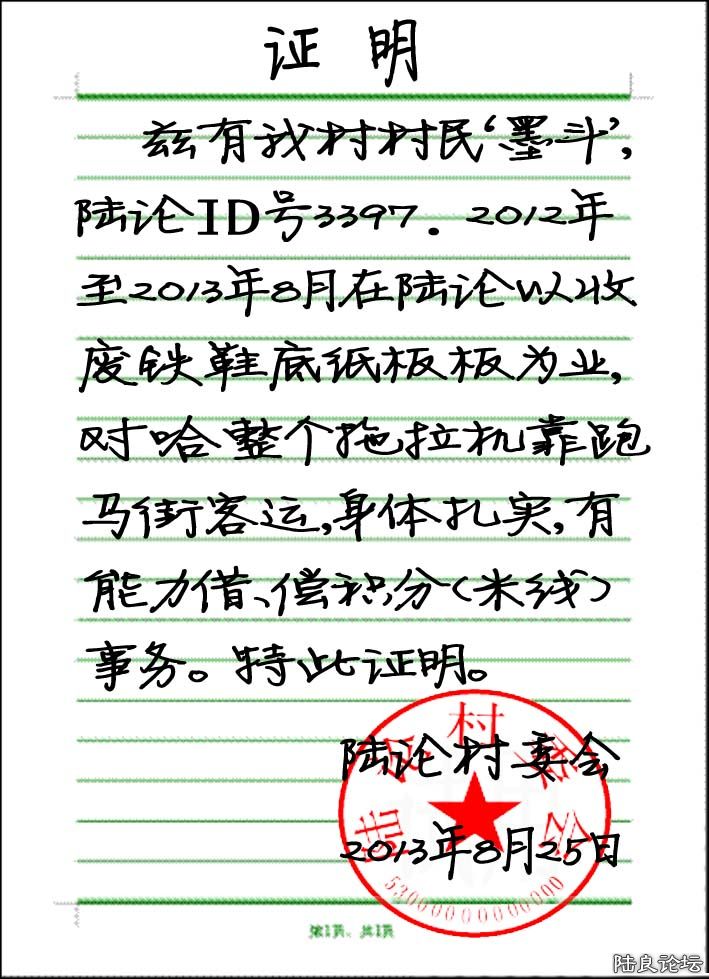 证 明
兹有我村村民‘墨斗’,
陆论ID号3397. 2012年
至2013年8月在陆论以收
废铁鞋底纸板板为业,
对哈整个拖拉机靠跑
马街客运,身体扎实,有
能力借、偿积分(米线)
事务。特此证明。
陆论村委会
2013年8月25日
陆良村委会
53000000000000
第1页、共1页
陆良论坛